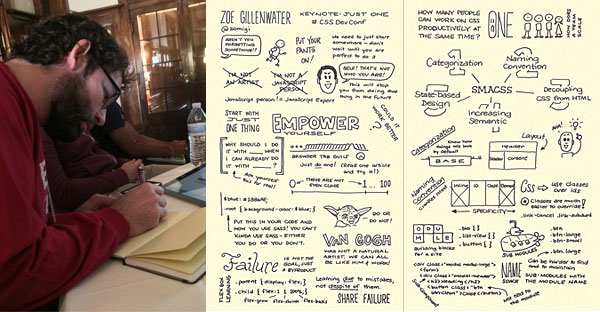 ZOE GILLENWATER
@zomigi
KEYNOTE: JUST ONE
# CSS Dev Conf
AREN'T YOU
FORGETTING
SOMETHING!?
PUT YOUR
PANTS
ON!
We need to just start
somewhere - don't
wait until you are
perfect to do it
I'M NOT
AN ARTIST
I'M NOT A
JAVASCRIPT
PERSON
SELF! THAT'S NOT
WHO YOU ARE!
This will stop
you from doing that
thing in the future
JavaScript person != JavaScript Expert
START WITH
JUST
ONE THING
EMPOWER
YOURSELF
COULD IT
WORK BETTER
WHY SHOULD I DO
IT WITH ___ WHEN
I CAN ALREADY DO
IT WITH ___?
Ask yourself
this for real!
BROWSER TAB GUILT
Just do one! (Read one article
and try it!)
THESE ARE NOT
EVEN CLOSE
0
1 ... 100
$blue:
:root { background-color: $blue; }
PUT THIS IN YOUR CODE AND
NOW YOU USE SASS! YOU CAN'T
KINDA USE SASS - EITHER
YOU DO OR YOU DON'T.
DO OR
DO NOT!
VAN GOGH
WAS NOT A NATURAL
ARTIST. WE CAN ALL
BE LIKE HIM & WORK!
Failure
IS NOT THE
GOAL, JUST
A BYPRODUCT
FLEX BOX
LEARNING
.parent {display: flex;}
.child { flex: 1 100%; }
flex-grow flex-shrink flex-basis
Learning due to mistakes,
not despite of them.
SHARE FAILURE
HOW MANY PEOPLE
CAN WORK ON CSS
PRODUCTIVELY AT
THE SAME TIME?
ONE
HOW DOES
A TEAM
SCALE
Categorization
Naming
Convention
State-based
Design
SMACSS
Decoupling
CSS from HTML
Increasing
Semantic
Categorization
Know how
things will look
by default
BASE
Layout
Header
Sidebar
content
Naming
Convention
Inline
ID
Class
Element
SPECIFICITY
Css
use classes
over ids
Classes are much
easier to override!
MODULE
Building blocks
for a site
.box { }
.list-view { }
.button { }
SUB MODULES
.btn
.btn-small
.btn-large
Can be harder to
find and to maintain
<div class="modal modal-large">
<h3>Heading</h3>
<button class="btn
btn-close">Close</button>
NAME
SPACE
SUB-MODULES WITH
THE MODULE NAME